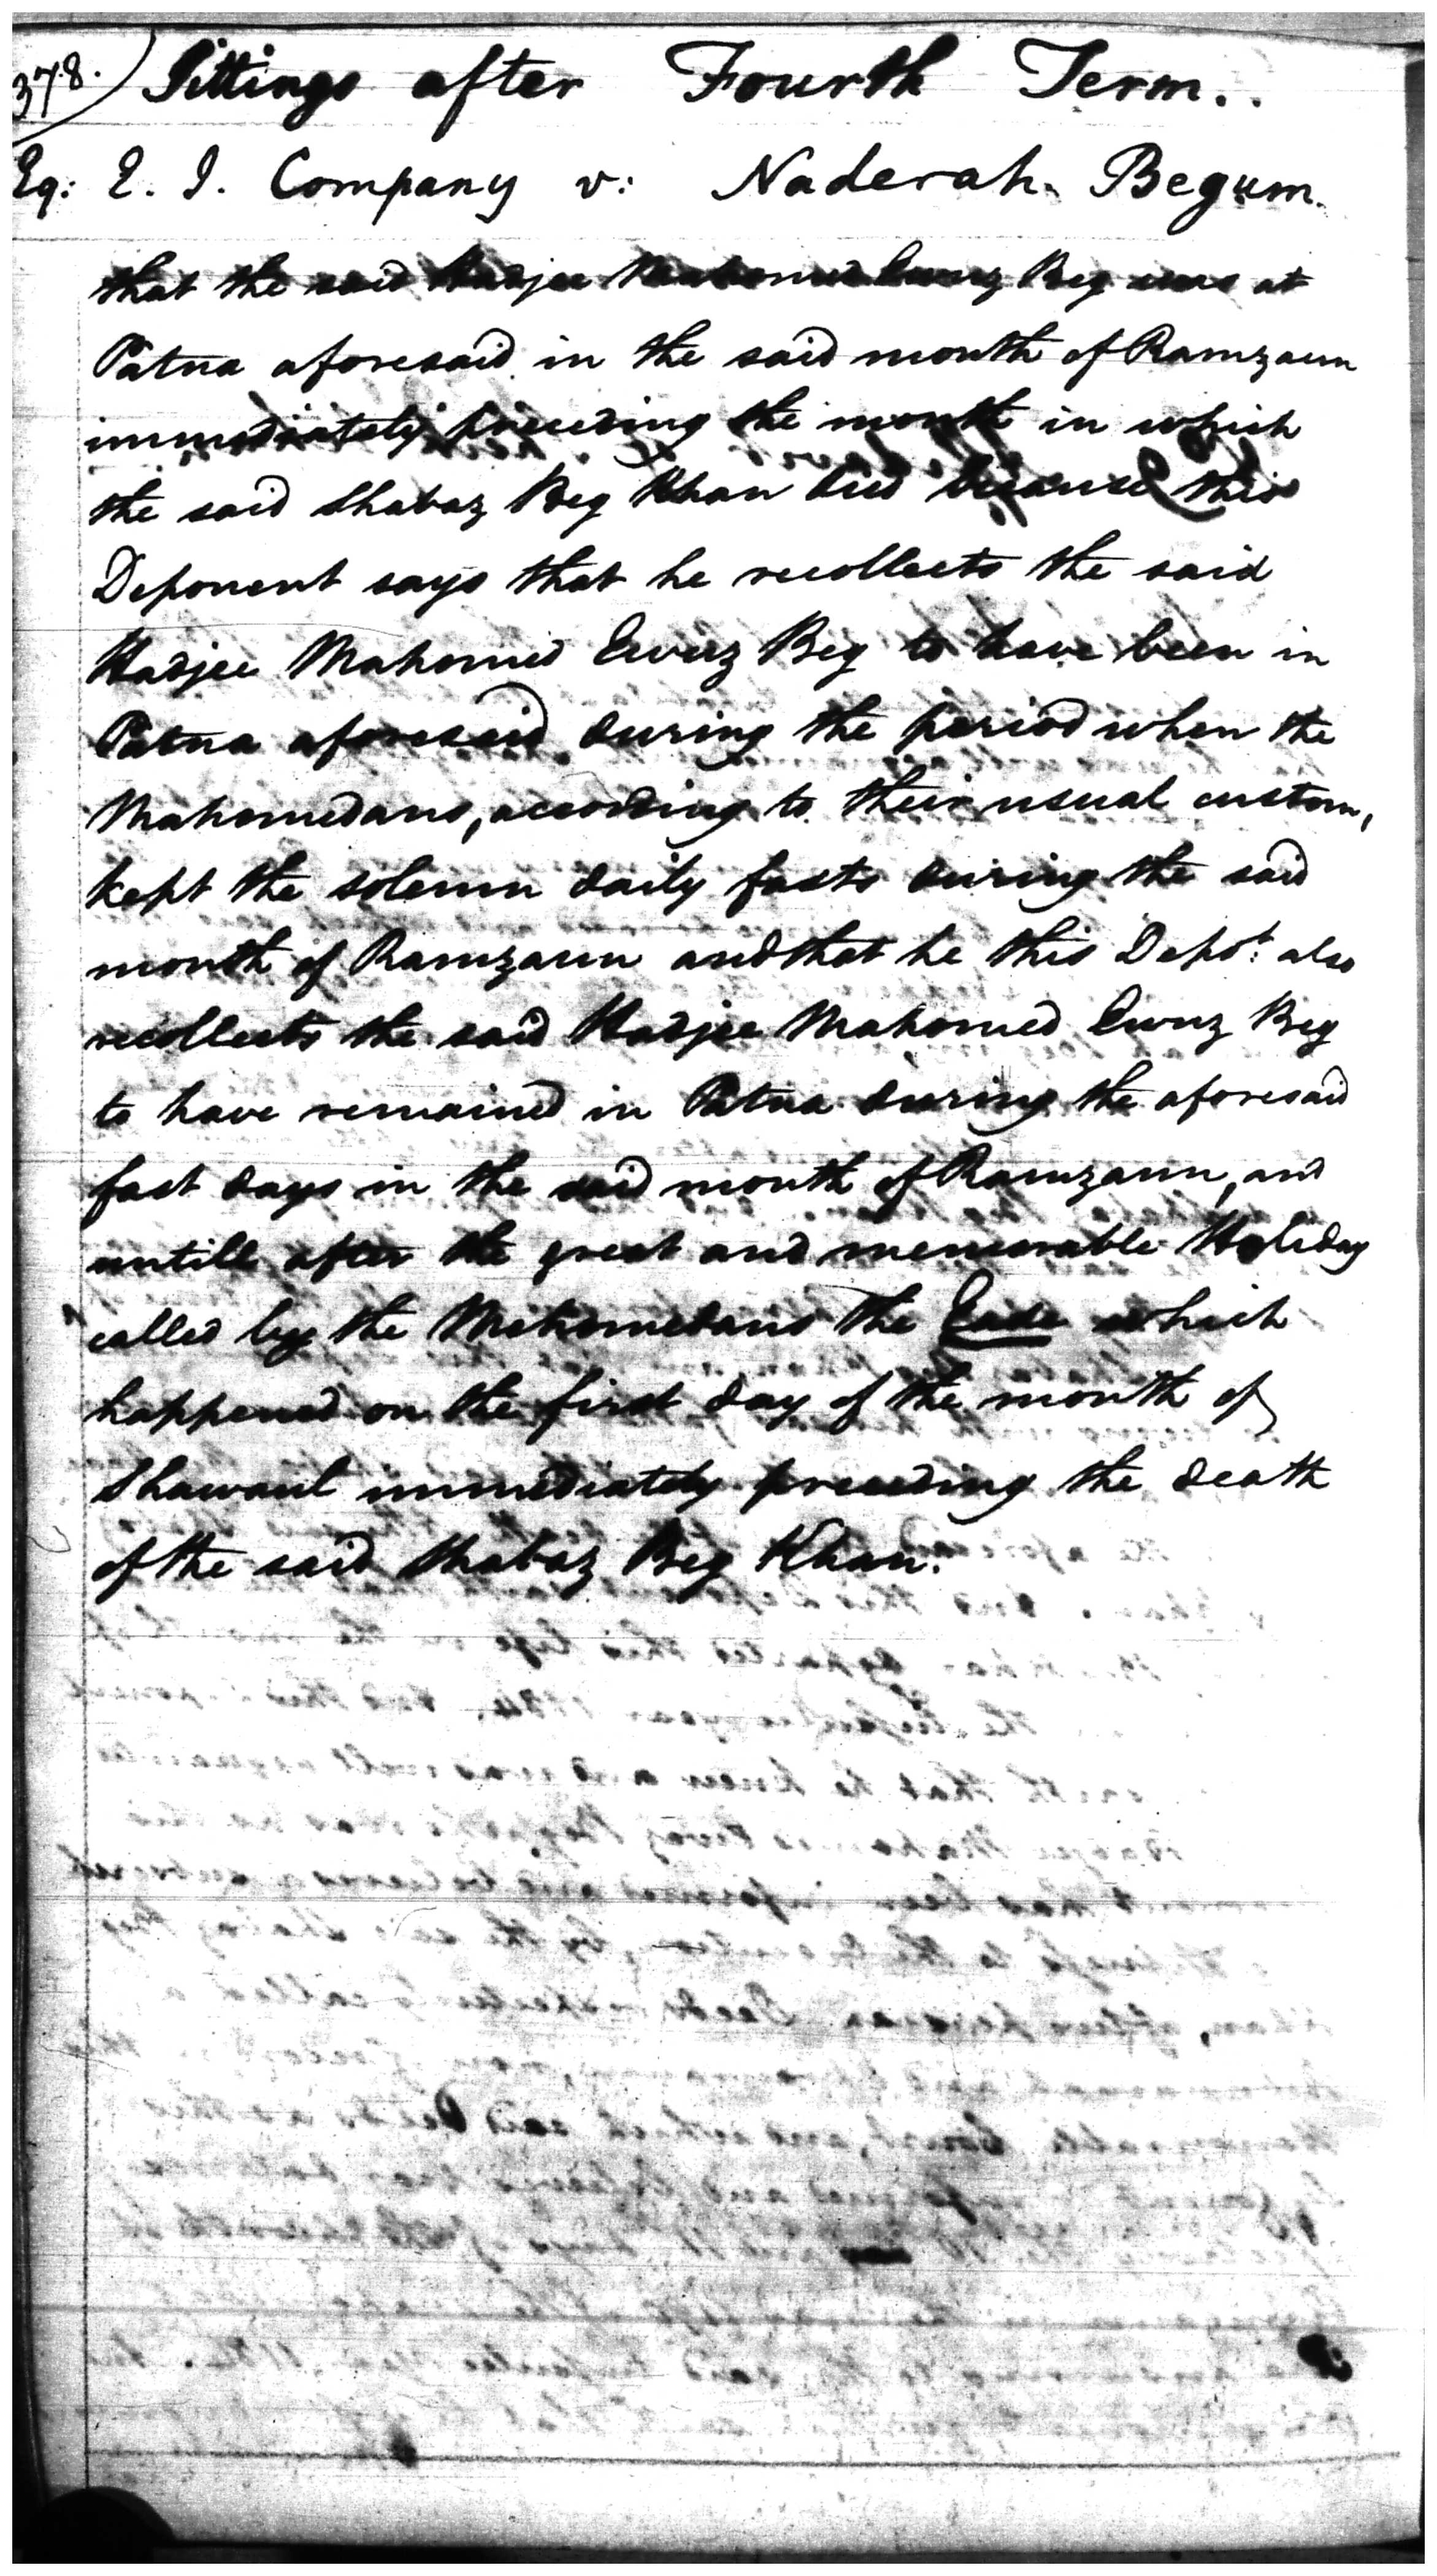 378.) Sittings after Fourth Term..
Eq: E. I. Company v: Naderah Begum.
that the said Hadjee Mahomed Ewuz Beg was at
Patna aforesaid in the said month of Ramzaun
immediately preceeding the month in which
the said Shabaz Beg Khan died because this
Deponent says that he recollects the said
Hadjee Mahomed Ewuz Beg to have been in
Patna aforesaid during the period when the
Mahomedans, according to their usual custom,
kept the solemn daily fasts during the said
month of Ramzaun and that he this Depot: also
recollects the said Hadjee Mahomed Ewuz Beg
to have remained in Patna during the aforesaid
fast days in the said month of Ramzaun, and
untill after the great and memorable Holiday
called by the Mahomedans the Eade which
happened on the first day of the month of
Shawaul immediately preceeding the death
of the said Shabaz Beg Khan.